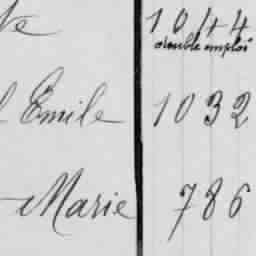 te 1044
double emploi
l Emile 1032
Marie 786